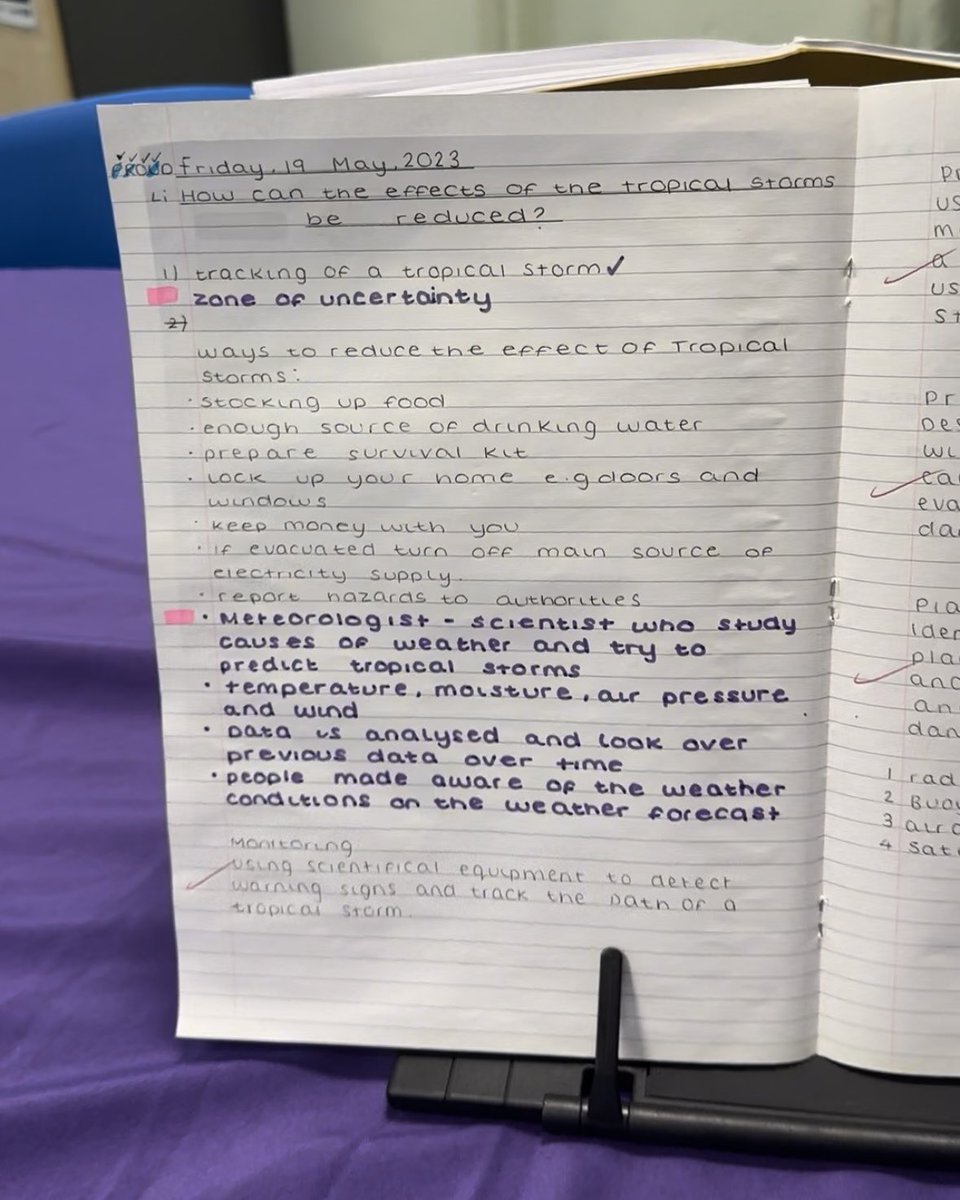 PROUD Friday, 19 May, 2023
Li How can the effects of the tropical storms
be reduced?
1) tracking of a tropical storm✓
zone of uncertainty
2)
ways to reduce the effect of Tropical
storms:
· stocking up food
· enough source of drinking water
· prepare survival kit
· Lock up your home e.g doors and
windows
· keep money with you
· if evacuated turn off main source of
electricity supply.
· report hazards to authorities
· Meteorologist - scientist who study
causes of weather and try to
predict tropical storms
· temperature, moisture, air pressure
and wind
· Data is analysed and look over
previous data over time
· people made aware of the weather
conditions on the weather forecast
Monitoring
using scientifical equipment to detect
warning signs and track the path of a
tropical storm.
Pr
us
m
a
us
st
pr
Des
wi
ea
eva
da
Pla
iden
pla
and
an
dan
1 rad
2 Buoy
3 airc
4 Sat